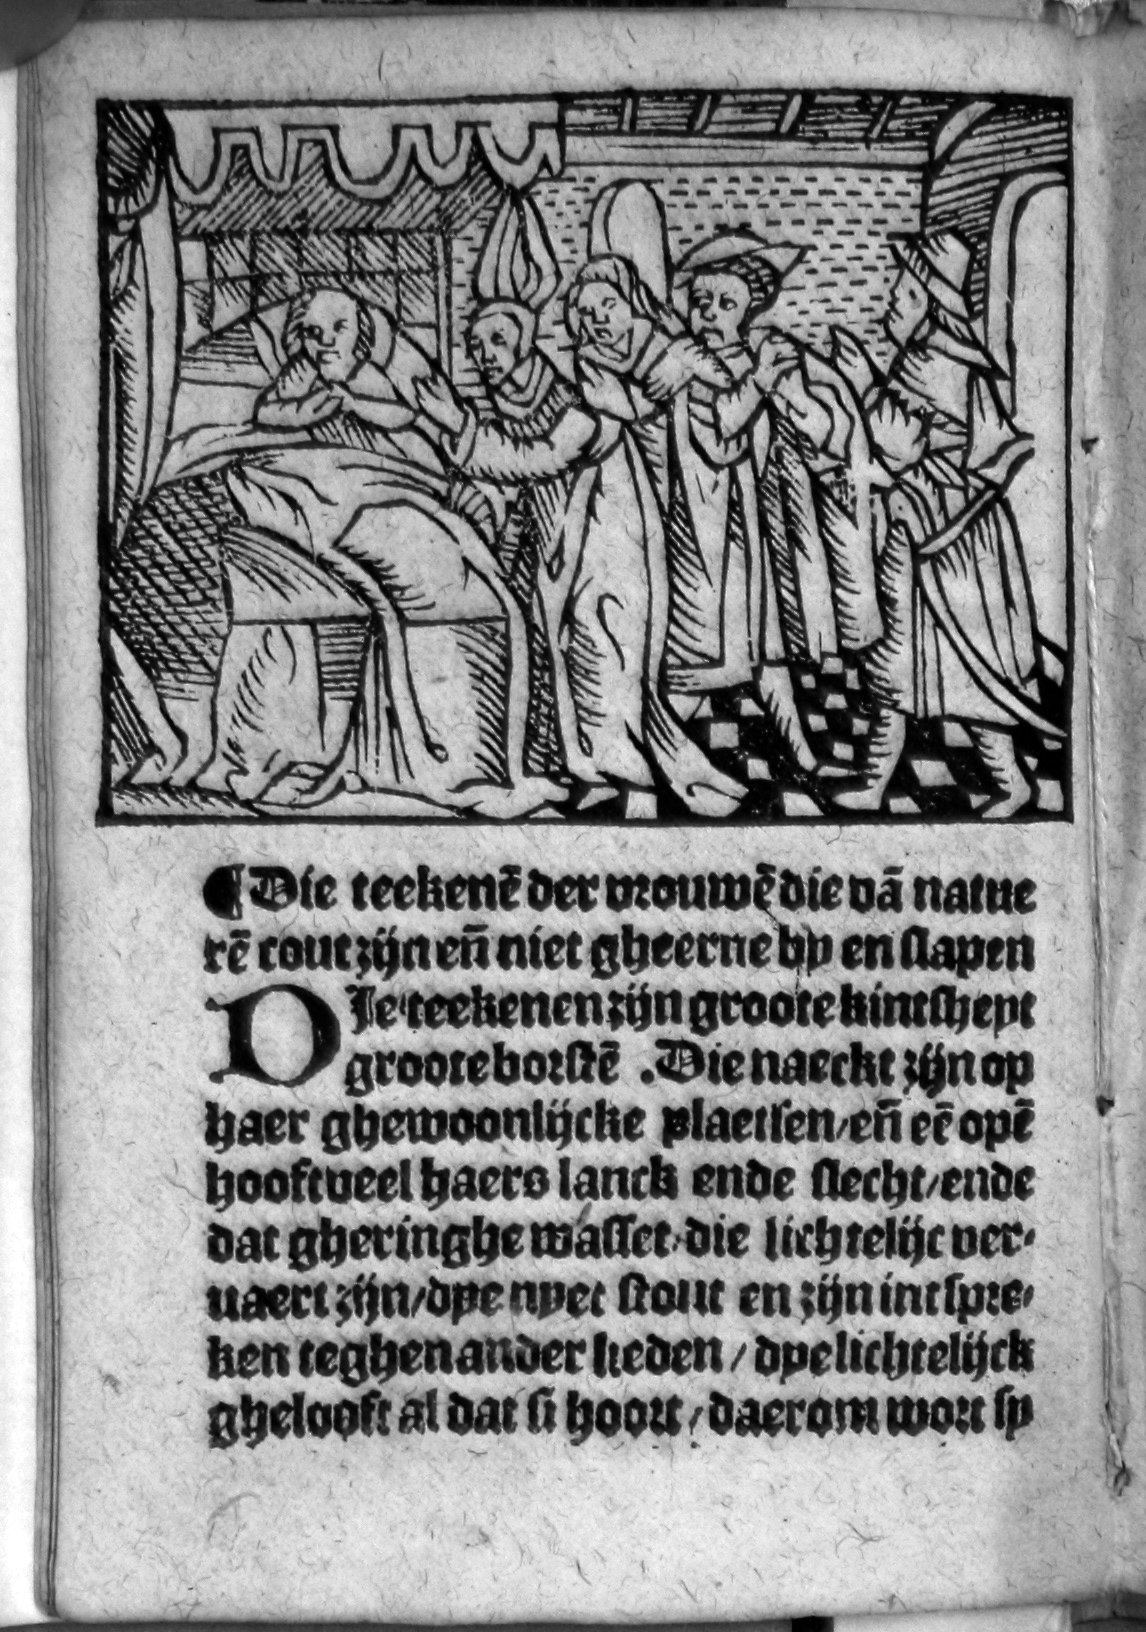 ¶Die teekenē der vrouwē die vā natue
rē cout zijn eñ niet gheerne by en slapen
DIe teekenen zijn groote kintshept
groote borstē .Die naeckt zijn op
haer ghewoonlijcke plaetsen/eñ eē opē
hooft veel haers lanck ende slecht/ende
dat gheringhe wasset/die lichtelijc ver-
uaert zijn/dye nyet stout en zijn int spre-
ken teghen ander lieden / dye lichtelijck
ghelooft al dat si hoort/daerom wort sy